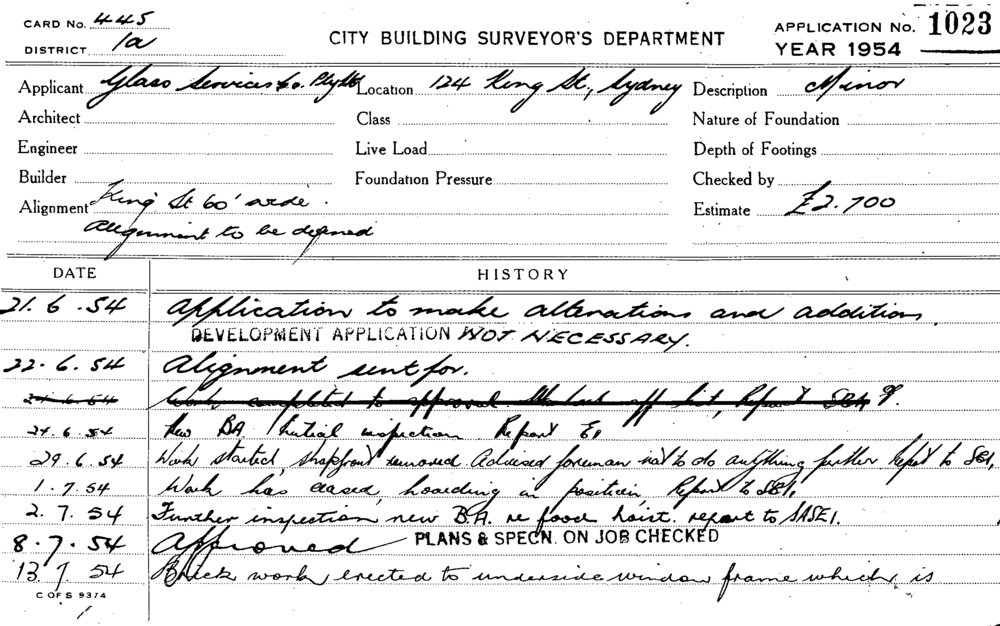 CARD No. 445
DISTRICT 1a
CITY BUILDING SURVEYOR'S DEPARTMENT
APPLICATION No. 1023
YEAR 1954
Applicant Glass Services Co. Pty Ltd Location 124 King St., Sydney Description Minor
Architect Class Nature of Foundation
Engineer Live Load Depth of Footings
Builder Foundation Pressure Checked by
Alignment King St 60' wide. Estimate £2.700
Alignment to be defined
DATE HISTORY
21.6.54 Application to make alterations and additions.
DEVELOPMENT APPLICATION NOT NECESSARY.
22.6.54 Alignment sent for.
24.6.54 Work completed to approval
24.6.54 New BA Initial inspection Report E1
29.6.54 Work started, shopfront removed. Advised foreman not to do anything further Report to SE1.
1.7.54 Work has ceased, hoarding in position, Report to SE1.
2.7.54 Further inspection new B.A. re food hoist. report to SASE1.
8.7.54 Approved PLANS & SPECN. ON JOB CHECKED
13 7 54 Brick work erected to underside window frame which is
C OF S 9374